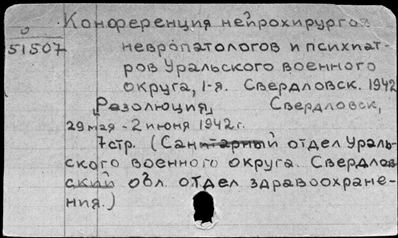 Конференция нейрохирургов
О
51507
невропатологов и психиат-
ров Уральского военного
округа, 1-я. Свердловск. 1942
[Резолюция] Свердловск,
29 мая - 2 июня 1942 г.
7стр. (Санитарный отдел Ураль-
ского военного округа. Свердлов
ский обл. отдел здравоохране-
ния.)